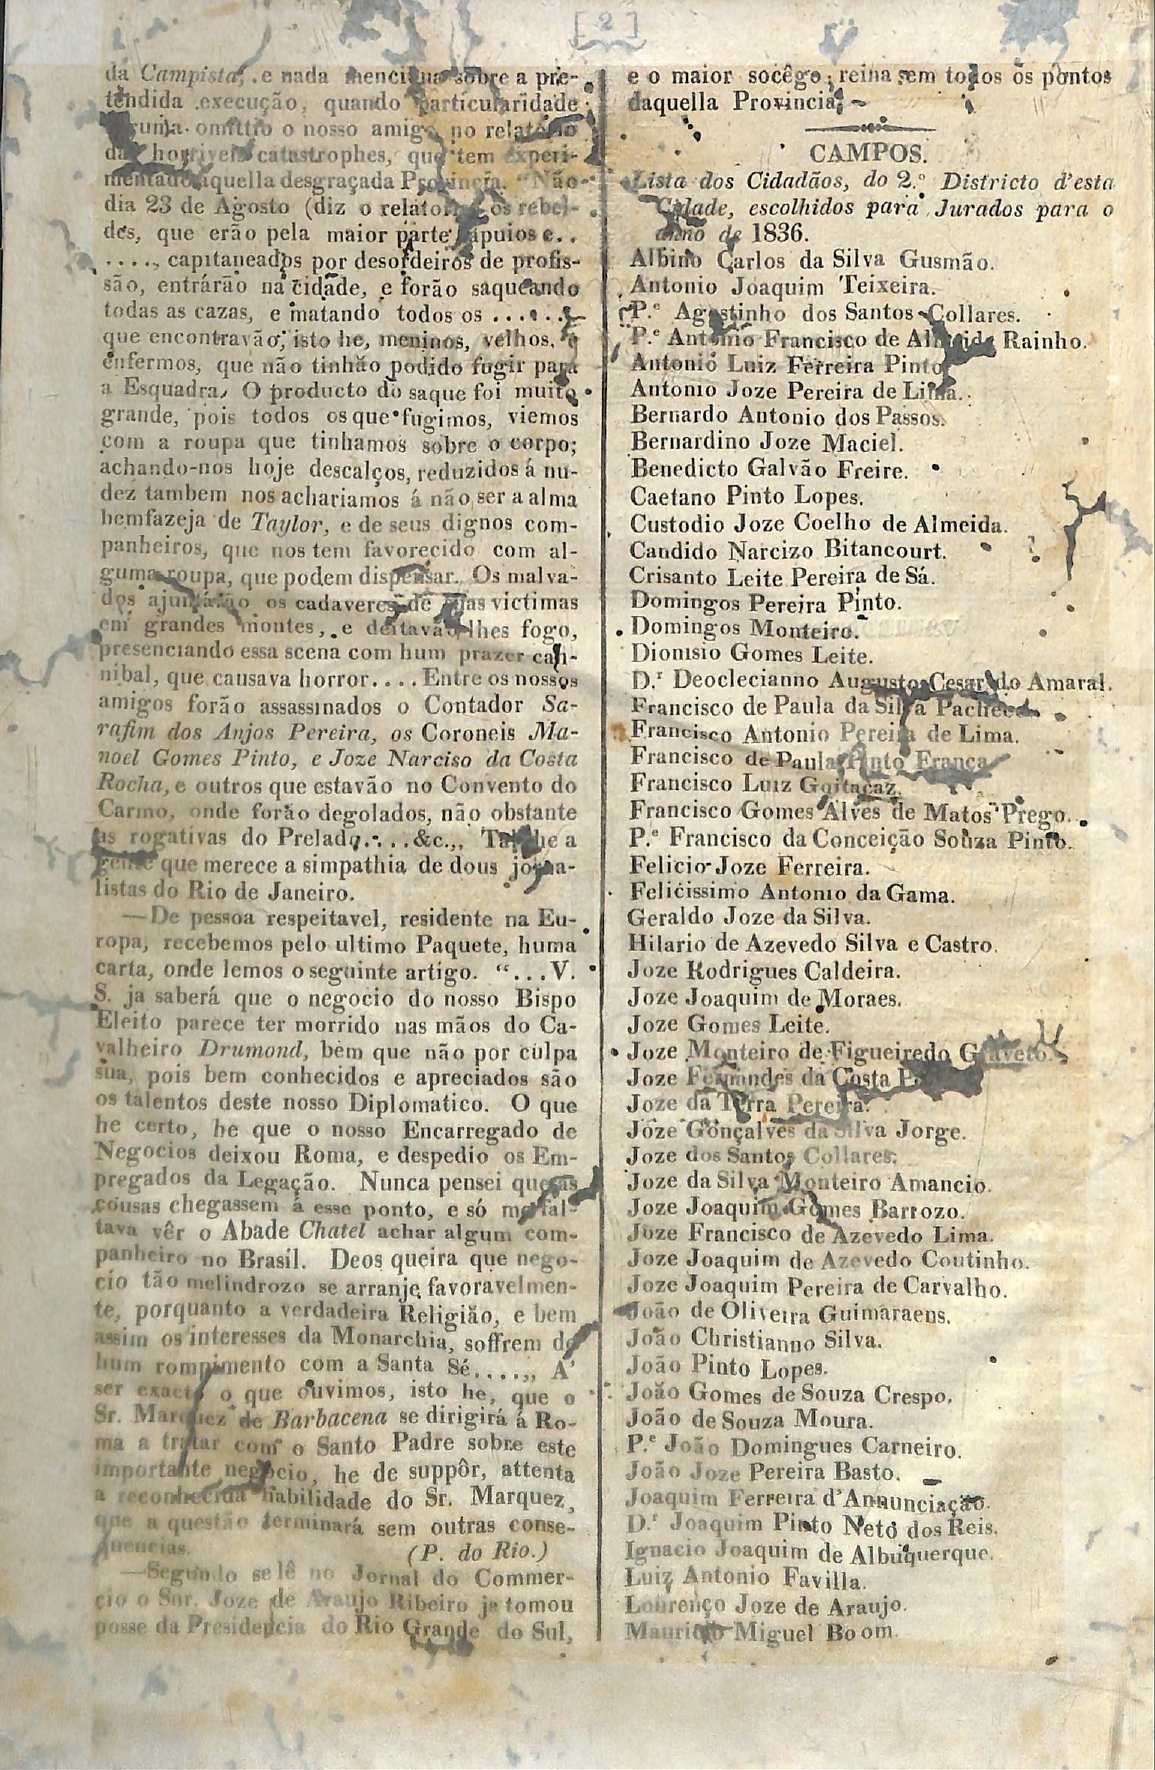 [ 2 ]
da Campista, e nada menciona sobre a pre-
tendida execução, quando particularidade
omittio o nosso amigo no relatorio
das horriveis catastrophes, que tem experi-
mentado aquella desgraçada Provincia. "Não
dia 23 de Agosto (diz o relatorio) os rebel-
des, que erão pela maior parte tapuios e..
...., capitaneados por desordeiros de profis-
são, entrárão na cidade, e forão saqueando
todas as cazas, e matando todos os ......
que encontravão, isto he, meninos, velhos, e
enfermos, que não tinhão podido fugir para
a Esquadra. O producto do saque foi muito
grande, pois todos os que fugimos, viemos
com a roupa que tinhamos sobre o corpo;
achando-nos hoje descalços, reduzidos á nu-
dez tambem nos achariamos á não ser a alma
bemfazeja de Taylor, e de seus dignos com-
panheiros, que nos tem favorecido com al-
guma roupa, que podem dispensar. Os malva-
dos ajuntárão os cadaveres de suas victimas
em grandes montes, e deitavão-lhes fogo,
presenciando essa scena com hum prazer can-
nibal, que causava horror.... Entre os nossos
amigos forão assassinados o Contador Sa-
rafim dos Anjos Pereira, os Coroneis Ma-
noel Gomes Pinto, e Joze Narciso da Costa
Rocha, e outros que estavão no Convento do
Carmo, onde forão degolados, não obstante
as rogativas do Prelado.... &c.,, Tal he a
gente que merece a simpathia de dous jorna-
listas do Rio de Janeiro.
—De pessoa respeitavel, residente na Eu-
ropa, recebemos pelo ultimo Paquete, huma
carta, onde lemos o seguinte artigo. "...V.
S. ja saberá que o negocio do nosso Bispo
Eleito parece ter morrido nas mãos do Ca-
valheiro Drumond, bem que não por culpa
sua, pois bem conhecidos e apreciados são
os talentos deste nosso Diplomatico. O que
he certo, he que o nosso Encarregado de
Negocios deixou Roma, e despedio os Em-
pregados da Legação. Nunca pensei que as
cousas chegassem á esse ponto, e só me fal-
tava vêr o Abade Chatel achar algum com-
panheiro no Brasil. Deos queira que nego-
cio tão melindrozo se arranje favoravelmen-
te, porquanto a verdadeira Religião, e bem
assim os interesses da Monarchia, soffrem de
hum rompimento com a Santa Sé....,, A'
ser exacto o que ouvimos, isto he, que o
Sr. Marquez de Barbacena se dirigirá á Ro-
ma a tratar com o Santo Padre sobre este
importante negocio, he de suppôr, attenta
a reconhecida habilidade do Sr. Marquez,
que a questão terminará sem outras conse-
quencias. (P. do Rio.)
—Segundo se lê no Jornal do Commer-
cio o Snr. Joze de Araujo Ribeiro ja tomou
posse da Presidencia do Rio Grande do Sul,
e o maior socêgo reina em todos os pontos
daquella Provincia.
CAMPOS.
Lista dos Cidadãos, do 2.º Districto d'esta
Cidade, escolhidos para Jurados para o
anno de 1836.
Albino Carlos da Silva Gusmão.
Antonio Joaquim Teixeira.
P.e Agostinho dos Santos Collares.
P.e Antonio Francisco de Almeida Rainho.
Antonio Luiz Ferreira Pinto
Antonio Joze Pereira de Lima.
Bernardo Antonio dos Passos.
Bernardino Joze Maciel.
Benedicto Galvão Freire.
Caetano Pinto Lopes.
Custodio Joze Coelho de Almeida.
Candido Narcizo Bitancourt.
Crisanto Leite Pereira de Sá.
Domingos Pereira Pinto.
Domingos Monteiro.
Dionisio Gomes Leite.
D.r Deoclecianno Augusto Cesar do Amaral.
Francisco de Paula da Silva Pacheco.
Francisco Antonio Pereira de Lima.
Francisco de Paula Pinto França.
Francisco Luiz Goitacaz.
Francisco Gomes Alves de Matos Prego.
P.e Francisco da Conceição Souza Pinto.
Felicio Joze Ferreira.
Felicissimo Antonio da Gama.
Geraldo Joze da Silva.
Hilario de Azevedo Silva e Castro.
Joze Rodrigues Caldeira.
Joze Joaquim de Moraes.
Joze Gomes Leite.
Joze Monteiro de Figueiredo Graveto.
Joze Fernandes da Costa
Joze da Terra Pereira.
Joze Gonçalves da Silva Jorge.
Joze dos Santos Collares.
Joze da Silva Monteiro Amancio.
Joze Joaquim Gomes Barrozo.
Joze Francisco de Azevedo Lima.
Joze Joaquim de Azevedo Coutinho.
Joze Joaquim Pereira de Carvalho.
João de Oliveira Guimaraens.
João Christianno Silva.
João Pinto Lopes.
João Gomes de Souza Crespo.
João de Souza Moura.
P.e João Domingues Carneiro.
João Joze Pereira Basto.
Joaquim Ferreira d'Annunciação.
D.r Joaquim Pinto Neto dos Reis.
Ignacio Joaquim de Albuquerque.
Luiz Antonio Favilla.
Lourenço Joze de Araujo.
Mauricio Miguel Boom.